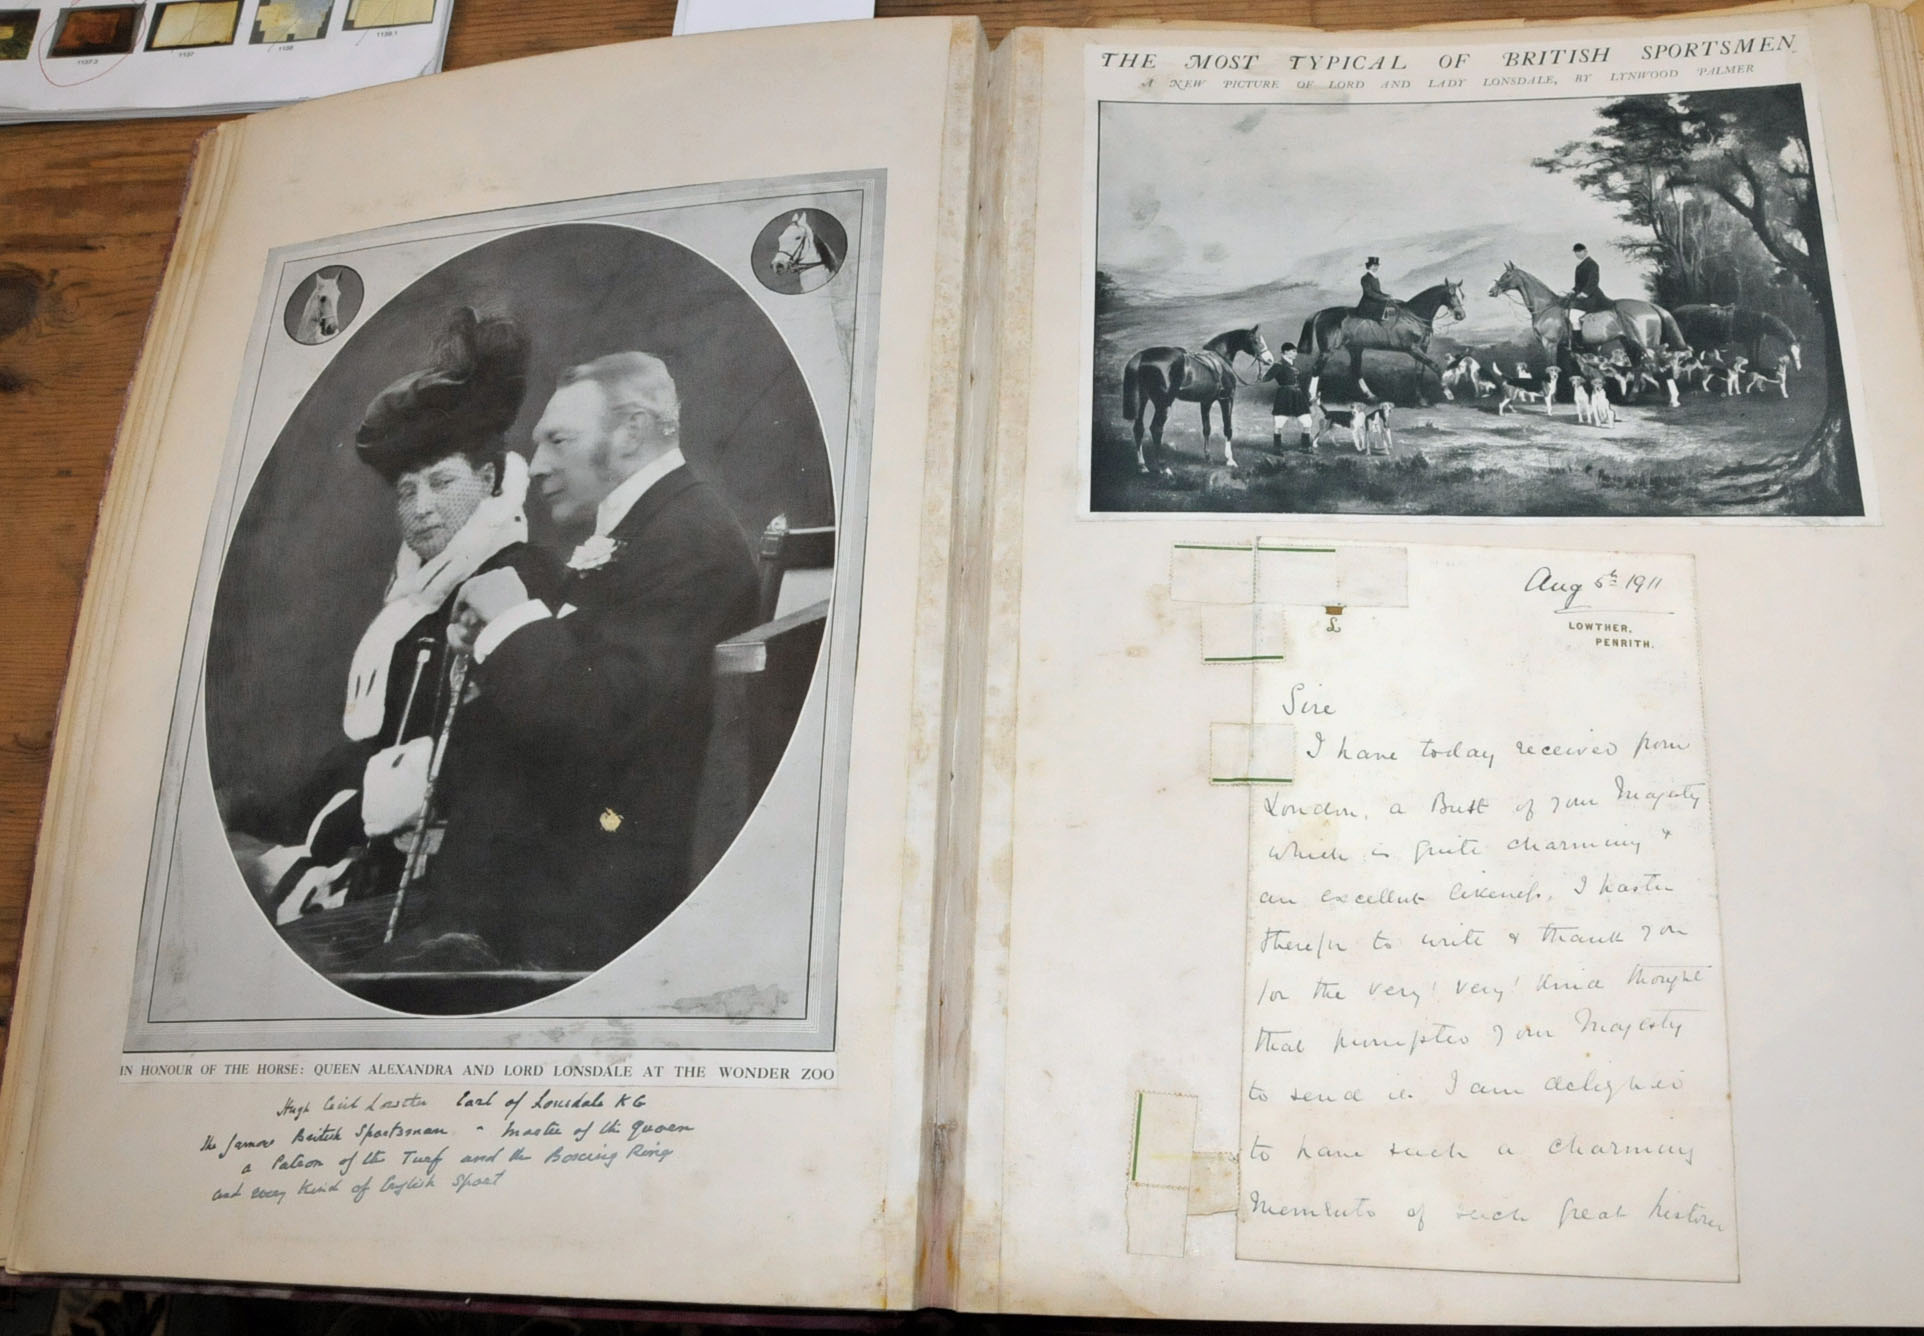 1137.2
1137
1138
1139.1
IN HONOUR OF THE HORSE: QUEEN ALEXANDRA AND LORD LONSDALE AT THE WONDER ZOO
Hugh Cecil Lowther Earl of Lonsdale KG
the famous British Sportsman - Master of the Quorn
a Patron of the Turf and the Boxing Ring
and every kind of English Sport
THE MOST TYPICAL OF BRITISH SPORTSMEN
A NEW PICTURE OF LORD AND LADY LONSDALE, BY LYNWOOD PALMER
Aug 5th 1911
L
LOWTHER,
PENRITH.
Sire
I have today received from
London, a Bust of your Majesty
which is quite charming &
an excellent likeness, I hasten
therefor to write & thank you
for the very! very! kind thought
that prompted your Majesty
to send it. I am delighted
to have such a charming
Memento of such great historic